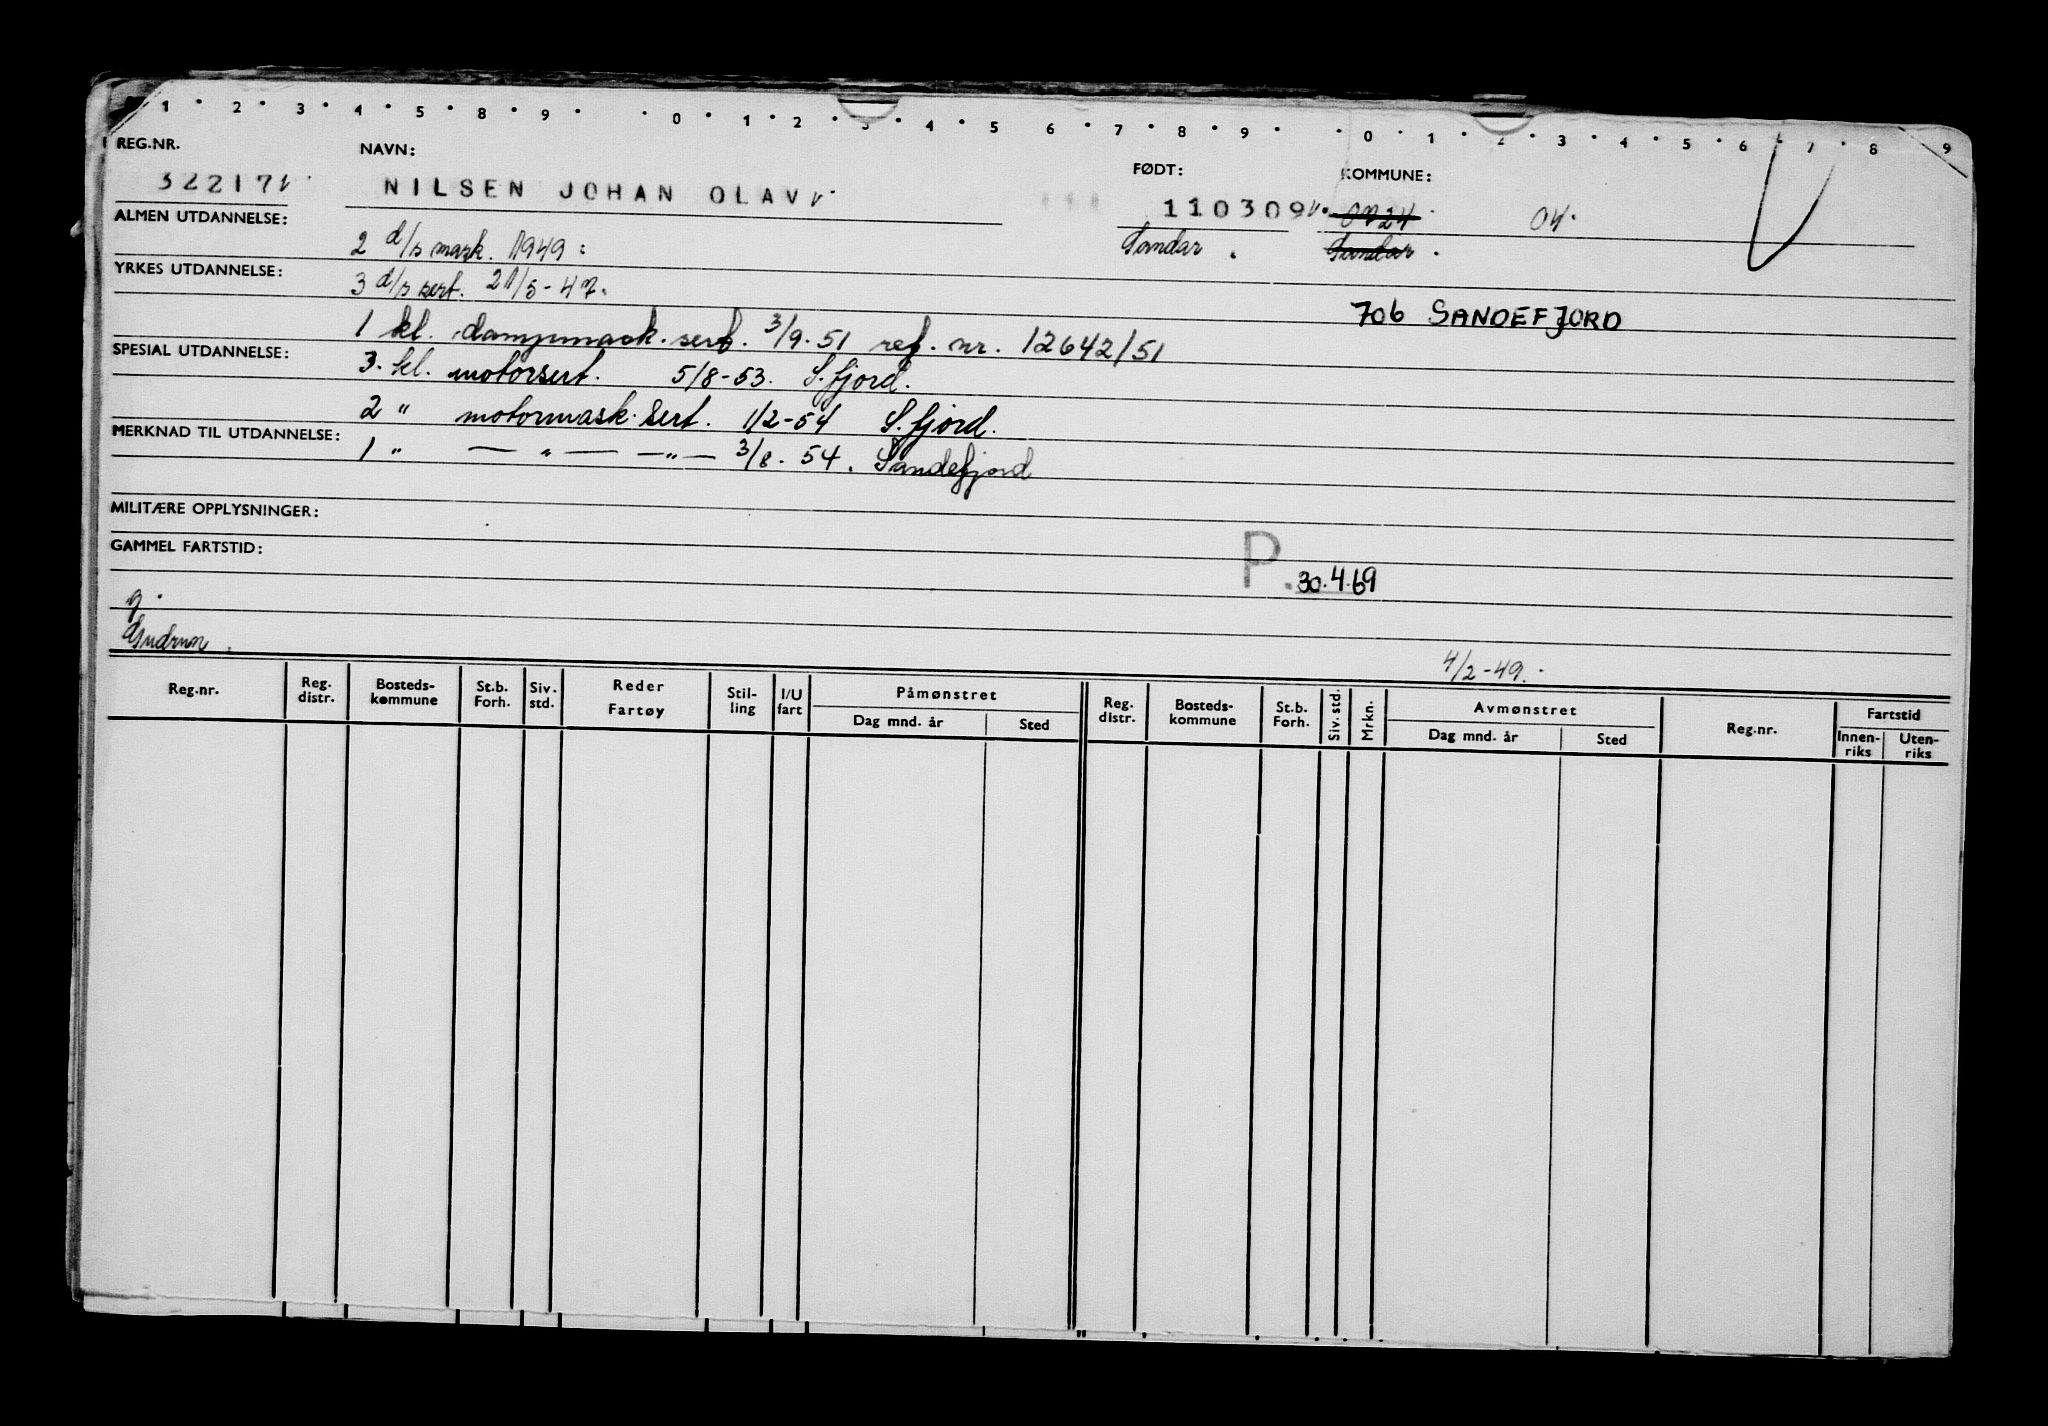 1 · 2 · 3 · 4 · 5 · 8 · 9 · · 0 · 1 · 2 · 3 · 4 · 5 6 · 7 · 8 · 9 · · 0 · 1 · 2 · 3 · 4 · 5 · 6 · 7 · 8 · 9
REG.NR. NAVN: FØDT: KOMMUNE:
322171 NILSEN JOHAN OLAV 110309 0724 04
ALMEN UTDANNELSE: Sandar Sandar
2 d/s mask. 1949
YRKES UTDANNELSE:
3 d/s sert. 21/5-47.
706 SANDEFJORD
1 kl. dampmask. sert. 3/9-51 ref. nr. 12642/51
SPESIAL UTDANNELSE:
3. kl. motorsert. 5/8-53. S.fjord.
2 " motormask. sert. 1/2-54 S.fjord.
MERKNAD TIL UTDANNELSE:
1 " — " — — " — 3/8. 54. Sandefjord
MILITÆRE OPPLYSNINGER:
GAMMEL FARTSTID:
P. 30.4.69
g.
Gudrun.
4/2-49.
Reg.nr. Reg. distr. Bosteds- kommune St.b. Forh. Siv. std. Reder Fartøy Stil- ling I/U fart Påmønstret Dag mnd. år Sted Reg. distr. Bosteds- kommune St.b. Forh. Siv. std. Mrkn. Avmønstret Dag mnd. år Sted Reg.nr. Fartstid Innen- riks Uten- riks